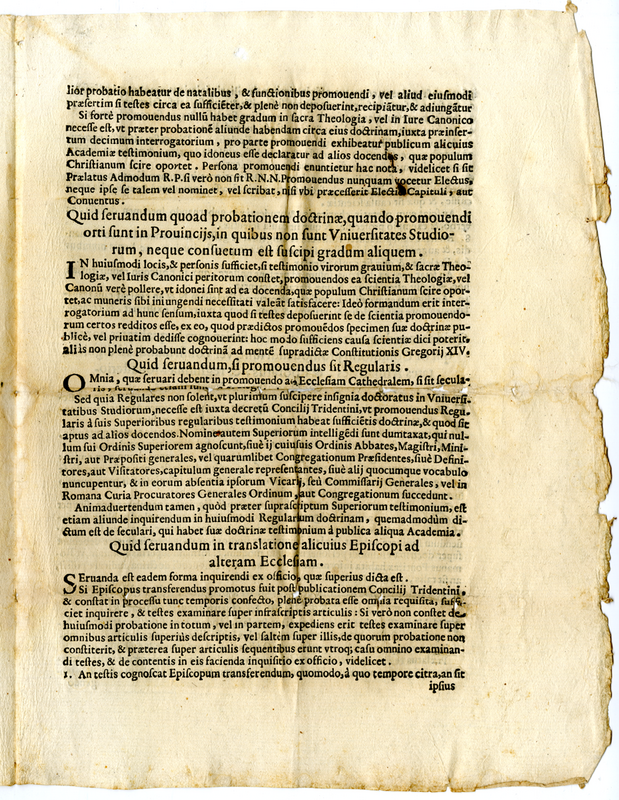 lior probatio habeatur de natalibus, & functionibus promouendi, vel aliud eiusmodi
præsertim si testes circa ea sufficiẽter, & plenè non deposuerint, recipiãtur, & adiungãtur
Si fortè promouendus nullũ habet gradum in sacra Theologia, vel in Iure Canonico
necesse est, vt præter probationẽ aliunde habendam circa eius doctrinam, iuxta præinser-
tum decimum interrogatorium, pro parte promouendi exhibeatur publicum alicuius
Academiæ testimonium, quo idoneus esse declaratur ad alios docendos, quæ populum
Christianum scire oportet. Persona promouendi enuntietur hac nota, videlicet si sit
Prælatus Admodum R.P. si verò non sit R.N.N. Promouendus nunquam vocetur Electus,
neque ipse se talem vel nominet, vel scribat, nisi vbi præcesserit Electio Capituli, aut
Conuentus.
Quid seruandum quoad probationem doctrinæ, quando promouendi
orti sunt in Prouincijs, in quibus non sunt Vniuersitates Studio-
rum, neque consuetum est suscipi gradum aliquem.
IN huiusmodi locis, & personis sufficiet, si testimonio virorum grauium, & sacræ Theo-
logiæ, vel Iuris Canonici peritorum constet, promouendos ea scientia Theologiæ, vel
Canonũ verè pollere, vt idonei sint ad ea docenda, quæ populum Christianum scire opor-
tet, ac muneris sibi iniungendi necessitati valeãt satisfacere: Ideò formandum erit inter-
rogatorium ad hunc sensum, iuxta quod si testes deposuerint se de scientia promouendo-
rum certos redditos esse, ex eo, quod prædictos promouẽdos specimen suæ doctrinæ pu-
blicè, vel priuatim dedisse cognouerint: hoc modo sufficiens causa scientiæ dici poterit,
aliàs non plenè probabunt doctrinã ad mentẽ supradictæ Constitutionis Gregorij XIV.
Quid seruandum, si promouendus sit Regularis.
OMnia, quæ seruari debent in promouendo ad Ecclesiam Cathedralem, si sit secula-
Sed quia Regulares non solent, vt plurimũ suscipere insignia doctoratus in Vniuersi-
tatibus Studiorum, necesse est iuxta decretũ Concilij Tridentini, vt promouendus Regu-
laris à suis Superioribus regularibus testimonium habeat sufficiẽtis doctrinæ, & quod sit
aptus ad alios docendos. Nomine autem Superiorum intelligẽdi sunt dumtaxat, qui nul-
lum sui Ordinis Superiorem agnoscunt, siuè ij cuiusuis Ordinis Abbates, Magistri, Mini-
stri, aut Præpositi generales, vel quarumlibet Congregationum Præsidentes, siuè Defini-
tores, aut Visitatores, capitulum generale representantes, siuè alij quocumque vocabulo
nuncupentur, & in eorum absentia ipsorum Vicarij, seù Commissarij Generales, vel in
Romana Curia Procuratores Generales Ordinum, aut Congregationum succedunt.
Animaduertendum tamen, quòd præter suprascriptum Superiorum testimonium, est
etiam aliunde inquirendum in huiusmodi Regularium doctrinam, quemadmodùm di-
ctum est de seculari, qui habet suæ doctrinæ testimonium à publica aliqua Academia.
Quid seruandum in translatione alicuius Episcopi ad
alteram Ecclesiam.
SEruanda est eadem forma inquirendi ex officio, quæ superius dicta est.
Si Episcopus transferendus promotus fuit post publicationem Concilij Tridentini,
& constat in processu tunc temporis confecto, plenè probata esse omnia requisita, suffi-
ciet inquirere, & testes examinare super infrascriptis articulis: Si verò non constet de
huiusmodi probatione in totum, vel in partem, expediens erit testes examinare super
omnibus articulis superiùs descriptis, vel saltem super illis, de quorum probatione non
constiterit, & præterea super articulis sequentibus erunt vtroq; casu omnino examinan-
di testes, & de contentis in eis facienda inquisitio ex officio, videlicet.
1. An testis cognoscat Episcopum transferendum, quomodo, à quo tempore citra, an sit
ipsius